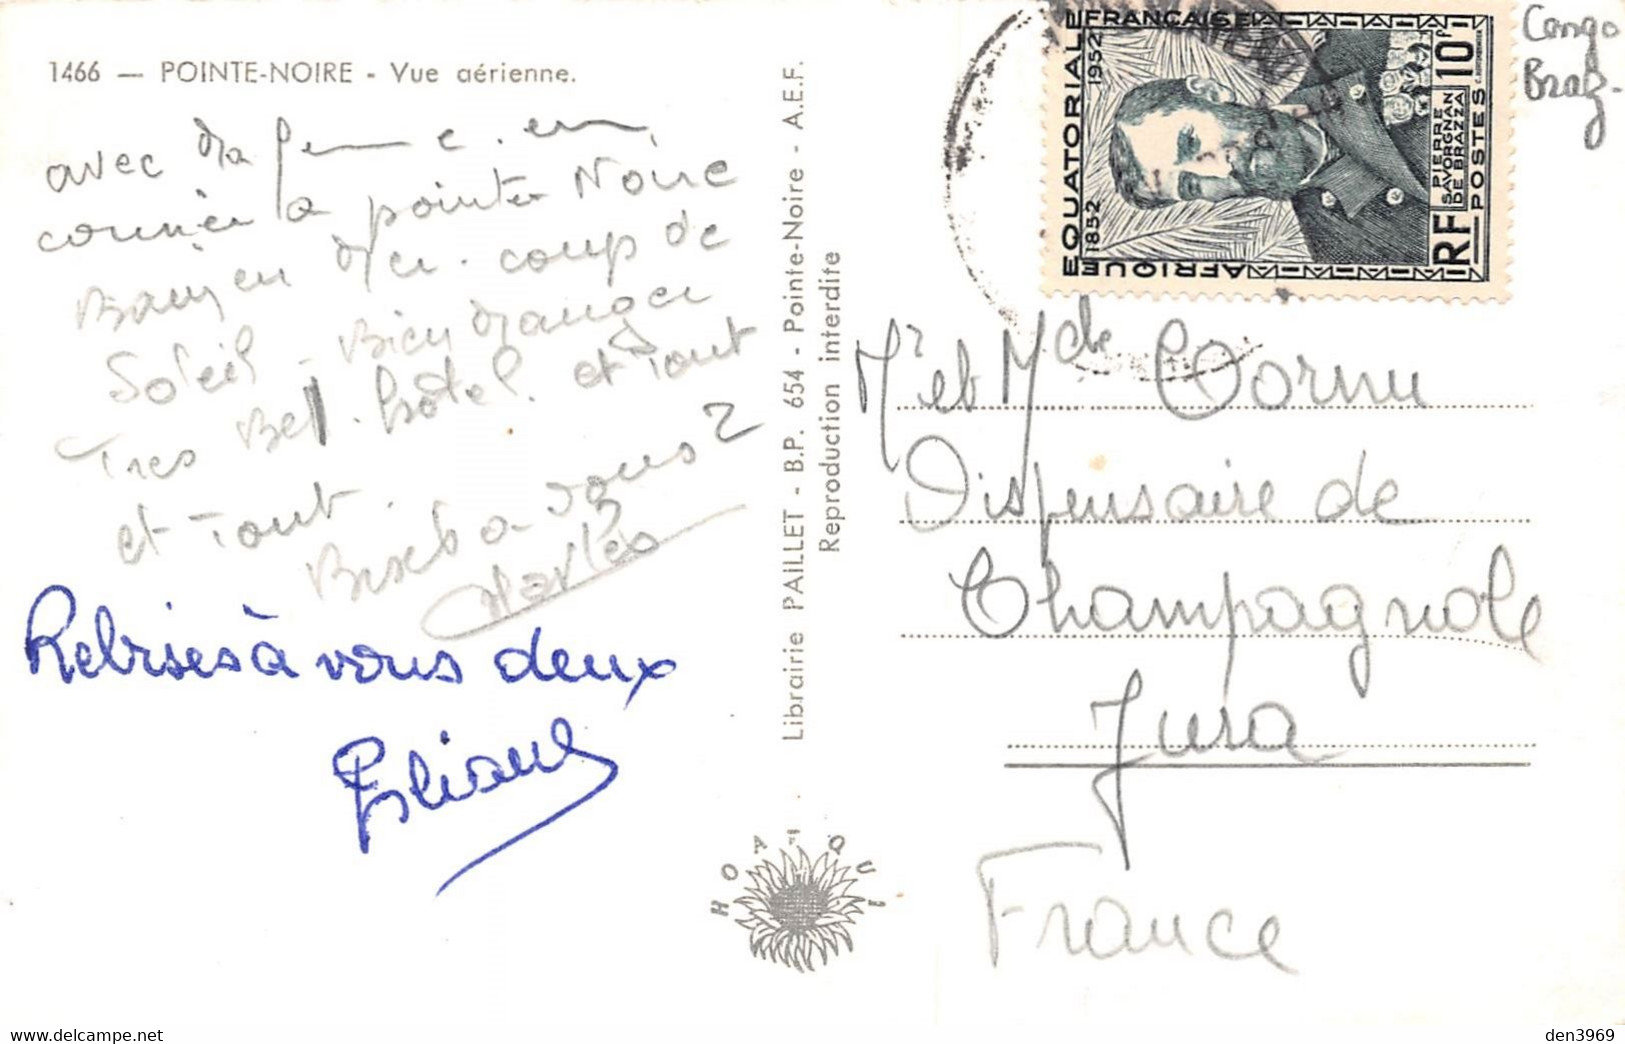 1466 — POINTE-NOIRE - Vue aérienne.
avec ma femme. en
tournée a pointe Noire
Baux en mer. coup de
Soleil - Bien manger
Tres Bel hôtel. et Tout
et Tout.
Bises a vous 2
Charles
Rebises à vous deux
Eliane
Librairie PAILLET - B.P. 654 - Pointe-Noire - A.E.F.
Reproduction interdite
HOA-QUI
AFRIQUE EQUATORIALE FRANÇAISE
1852 1952
RF PIERRE SAVORGNAN DE BRAZZA 10F
POSTES
Congo
Braz-
Mr et Mde Cornu
Dispensaire de
Champagnole
Jura
France
den3969